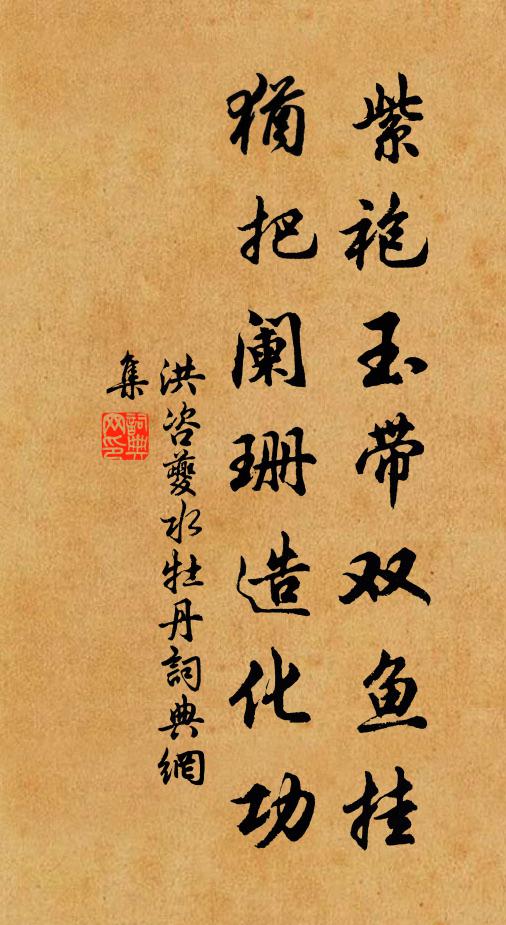 紫袍玉带双鱼挂
猶把阑珊造化功
洪咨夔水牡丹詞典網
集
詞典网印